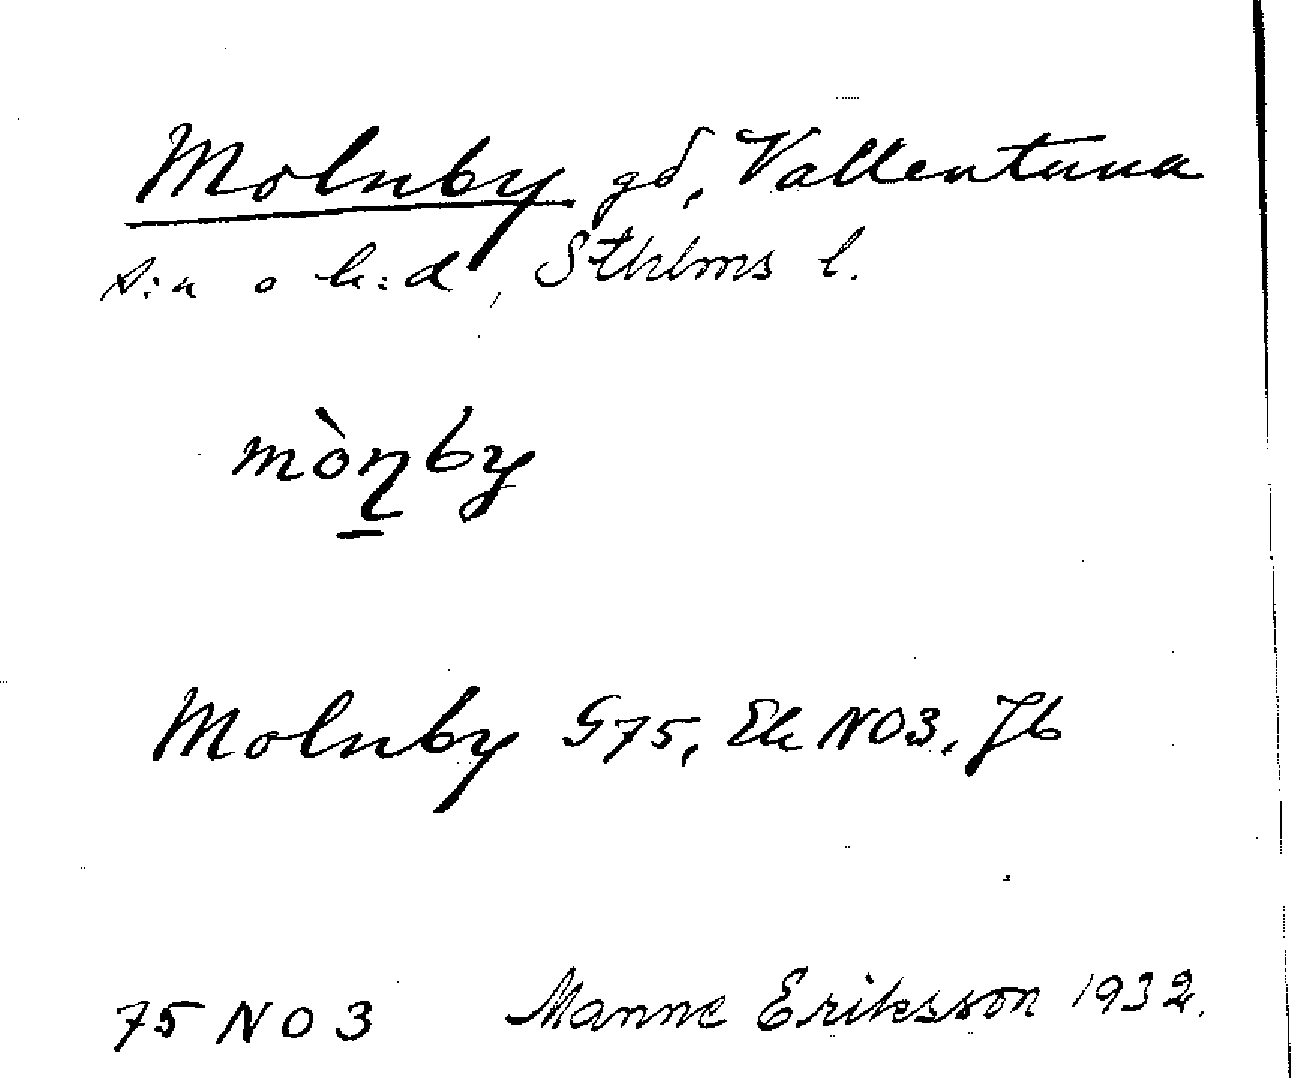 Molnby gd, Vallentuna
s:n o h:d, Sthlms l.
mòn̲by
Molnby G75, Ek NO3, Jb
75 NO 3 Manne Eriksson 1932.